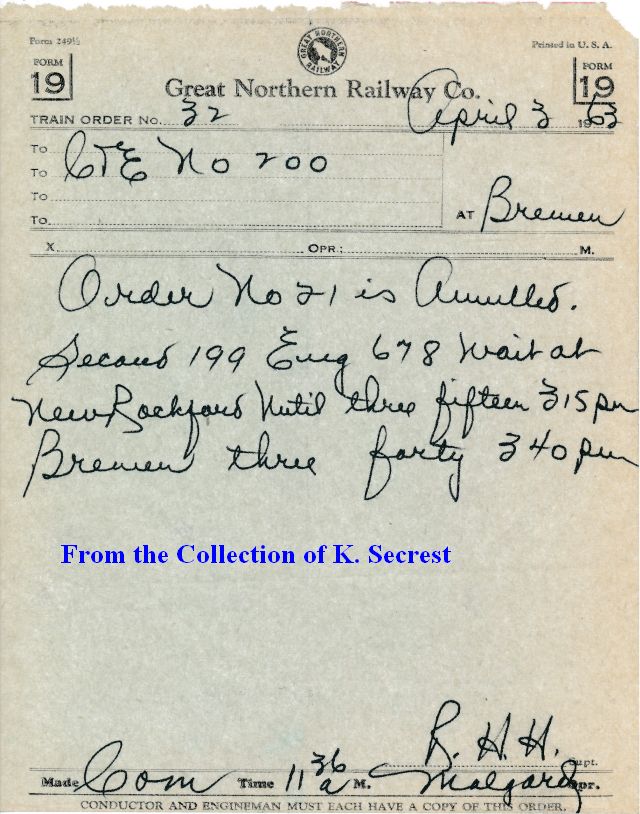 Form 249½
GREAT NORTHERN RAILWAY
Printed in U. S. A.
FORM 19
FORM 19
Great Northern Railway Co.
TRAIN ORDER No. 32 April 3 1963
To
To C&E No 200
To
To
AT Bremen
X OPR.: M.
Order No 21 is Annulled.
Second 199 Eng 678 Wait at
New Rockford Until three fifteen 315 pm
Bremen three forty 340 pm
From the Collection of K. Secrest
R. H. H. Supt.
Made Com Time 11 36 a M. Malgard Opr.
CONDUCTOR AND ENGINEMAN MUST EACH HAVE A COPY OF THIS ORDER.